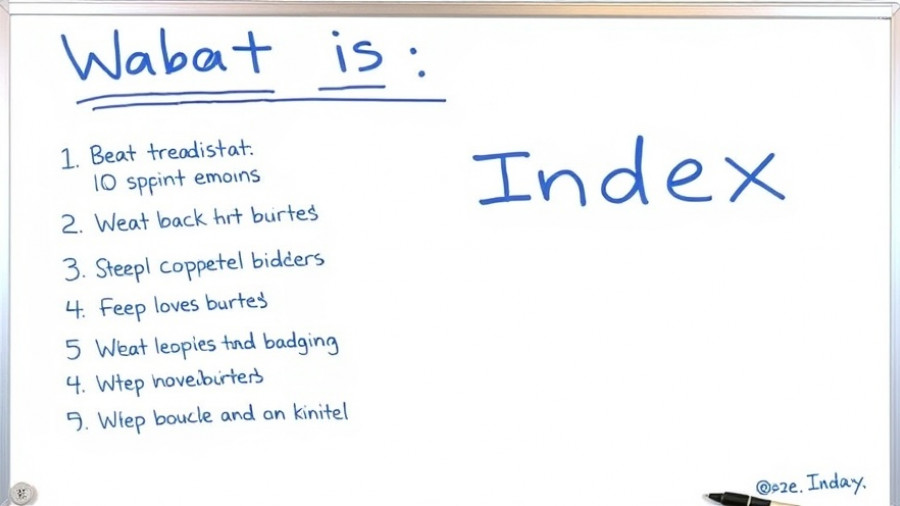 Wabat is:
1. Beat treadistat:
10 sppint emoins
2. Weat back hrt burtes
3. Steepl coppetel bidders
4. Feep loves burtes
5 Weat leopies tnd badging
4. Wtep hove.birters
5. Wlep boucle and on kinitel
Index
Inday.